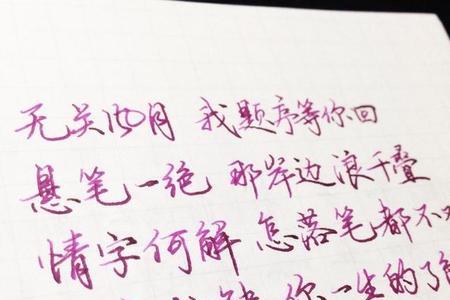 无关风月 我题序等你回
悬笔一绝 那岸边浪千叠
情字何解 怎落笔都不
你一生的了解